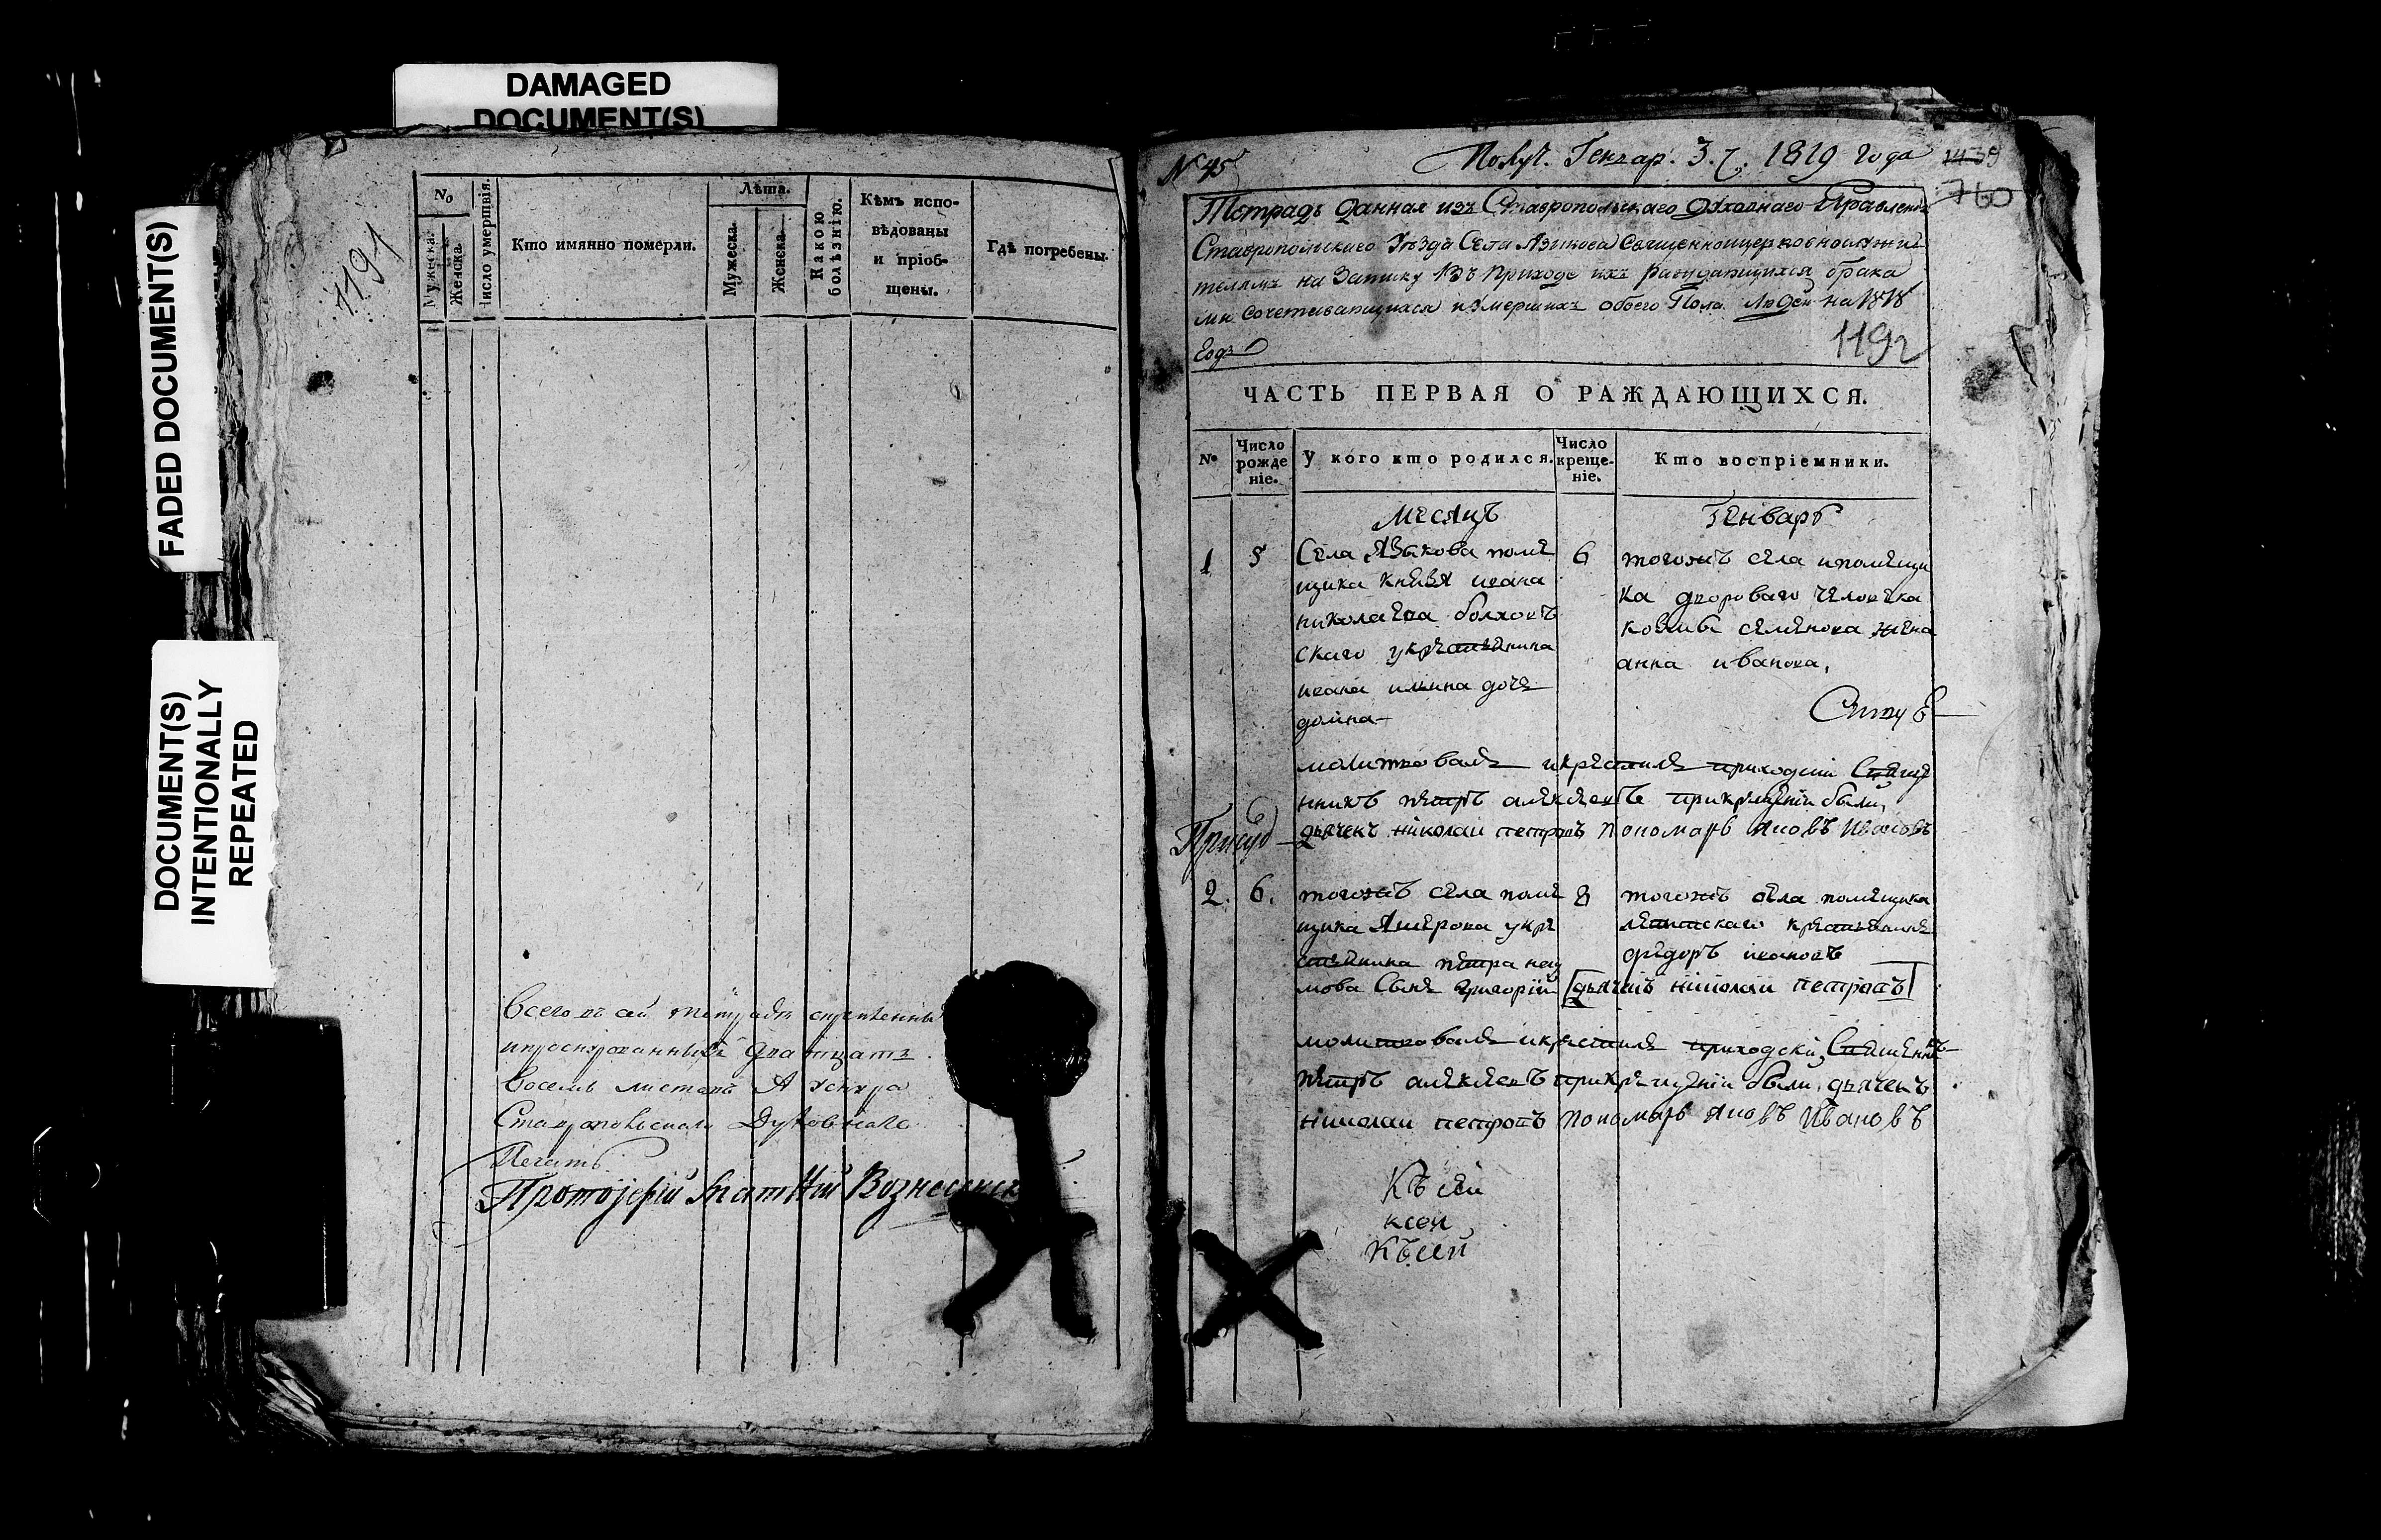 DAMAGED
DOCUMENT(S)
FADED DOCUMENT(S)
DOCUMENT(S)
INTENTIONALLY
REPEATED
1191
No
Мужеска.
Женска.
Число умершвія.
Кто имянно померли.
Лѣта.
Мужеска.
Женска.
Какою
болѣзнію.
Кѣмъ испо-
вѣдованы
и пріоб-
щены.
Гдѣ погребены.
Всего въ сей тетради скрепленныхъ
двадцать
восемь листовъ
Ставропольскаго Духовнаго
Печать
Протоіерей Вознесенск
№ 45
Получ. Генвар. 3. 1819 года
1439
760
Тетрадь данная изъ Ставропольскаго Духовнаго Правленія
Ставропольскаго Уѣзда Села Языкова Священноцерковнослужи
телямъ на Записку въ Приходе ихъ раждающихся брака
ми Сочетавающихся и умершихъ обоего Пола Людей на 1818
Годъ
1192
ЧАСТЬ ПЕРВАЯ О РАЖДАЮЩИХСЯ.
№
Число
рожде
ніе.
У кого кто родился.
Число
креще-
ніе.
Кто воспріемники.
Месяцъ Генварь
1 5
Села Языкова поме
щика князя ивана
николаева болхов
скаго у крестьянина
ивана дочь
домна
6
тогожъ села и помещи
ка двороваго человека
козмы семенова жена
анна иванова,
молитвовалъ и крестилъ приходскій Свяще
нникъ петръ алексеевъ при крещеніи были,
дьячекъ николай петровъ пономарь Яковъ Ивановъ
2. 6.
тогожъ села поме
щика у кре
стьянина петра нау
мова Сынъ Григорій
8
тогожъ села помещика
крестьянинъ
федоръ ивановъ
дьячекъ николай петровъ
молитвовалъ и крестилъ приходскій Священникъ
петръ алексеевъ при крещеніи были, дьячекъ
николай петровъ пономарь Яковъ Ивановъ
Къ сей
ксеи
Къ сей